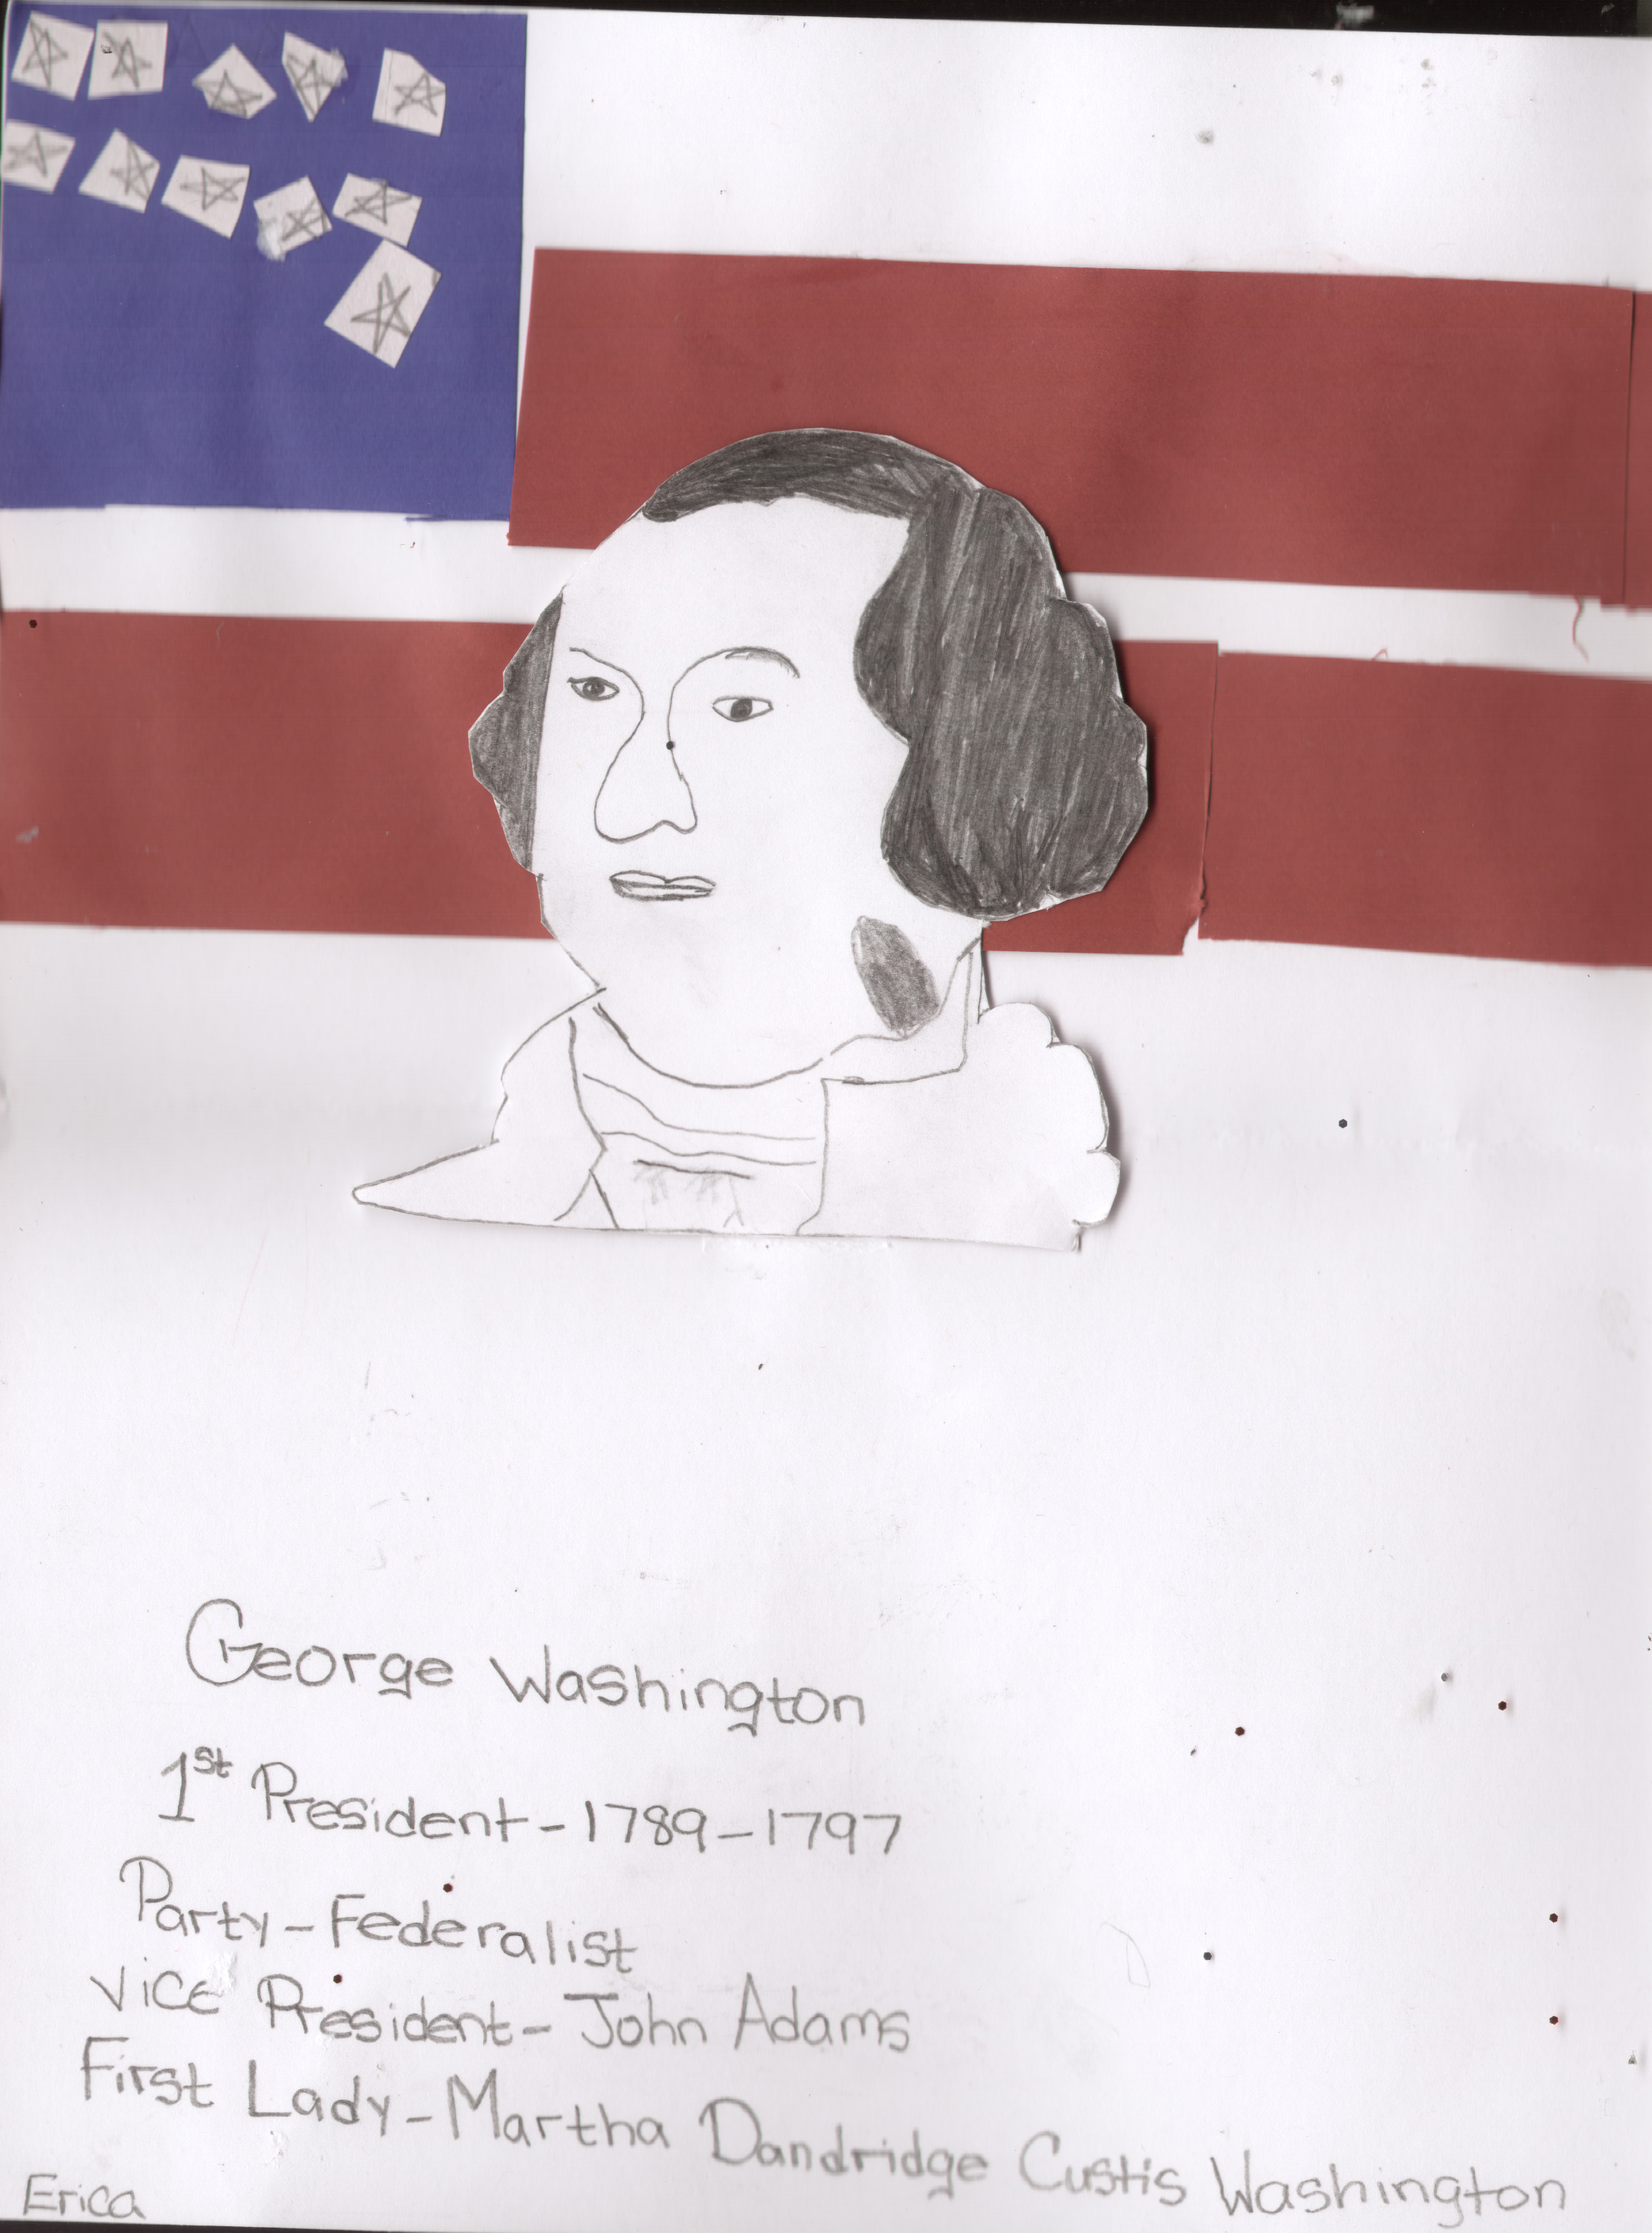 George Washington
1st President-1789-1797
Party-Federalist
Vice President-John Adams
First Lady-Martha Dandridge Custis Washington
Erica